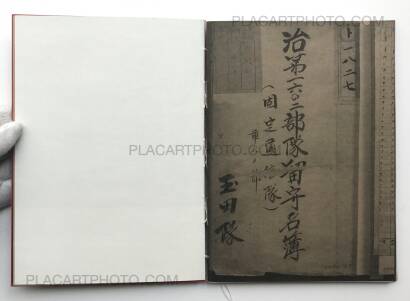 PLACARTPHOTO.COM
PLACARTPHOTO.COM
PLACARTPHOTO.COM
PLACARTPHOTO.COM
PLACARTPHOTO.COM
ト一八二七
治第一六〇二部隊留守名簿
(固定通信隊)
玉田隊